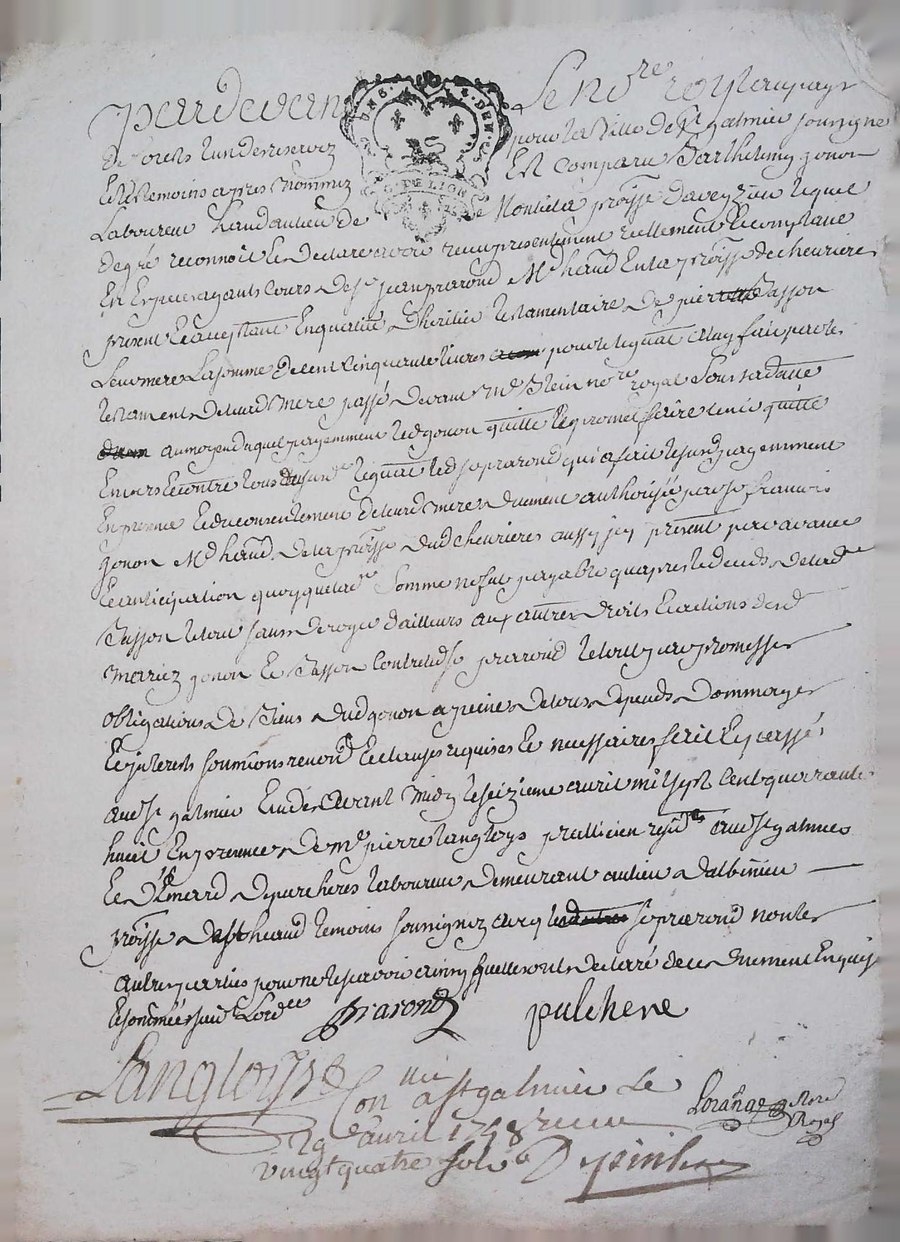 Pardevant Le no.re royal au pays
de forests tant reservez pour la Ville de St galmier soussigne
Et temoins apres nommez Est Comparu Barthelemy gonon
Laboureur hand au lieu de Montela proisse daveyzieu lequel
de gre reconnoit Et Declare avoir recu presentement reellement Et comptant
En Especes ayants cours de Sr jean prarond Md hand En la proisse de chevrieres
present Et acceptant En qualité d'heritier testamentaire de pierre Jasson
La somme de cent cinquante livres pour le legat a luy fait par le
testament de lad mere passé devant Me no.re royal sous sa datte
au moyen duquel payemment led gonon quitte Et promet faire tenir quitte
Envers Et contre tous led sr prarond qui a fait lesusd payemment
En presence Et du consentement de lad mere duement authorisée par sr francois
gonon Md hand de la proisse dud chevrieres aussy jcy present par avance
Et anticipation quoyque lad Somme ne fut payable quapres le deceds de lad
Jasson Le tout sans deroger d'ailleurs aux autres Droits Et actions desd
mariez gonon Et Jasson Contre led sr prarond Le tout par promesses
obligations de Biens dud gonon a peine de tous depends dommages
Et jnterests soumions renond Et clauses requises Et necessaires fait Et passé
aud St galmier Etude avant midy le seizieme avril mil sept cent quarante
huit En presence de Me pierre Langloys praticien resid.t aud St galmier
Et Emard de laboureur demeurant au lieu d'albinieu
proisse temoins soussignez avec led sr prarond non les
autres parties pour ne le scavoir ainsy quelles ont declaré de ce duement Enquis
Et sommées suiv.t Lord.ce
prarond pulchere
Langloys
Con.lle a St galmier le
29e avril 1748 recu
vingt quatre sols
Lorange Nore Royal